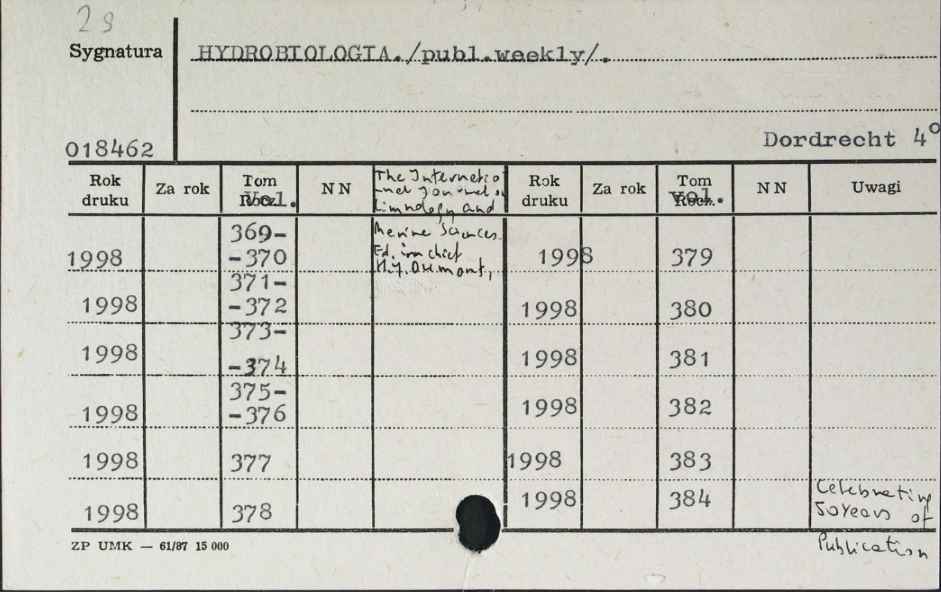 29
Sygnatura HYDROBIOLOGIA./publ.weekly/.
Dordrecht 4°
018462
Rok druku Za rok Tom Vol. NN The Internatio Rok druku Za rok Tom vol. NN Uwagi
nal Journal o
Limnology and
Marine Sciences.
Ed. in chief
H.J. Dumont,
1998 369-
-370 1998 379
1998 371-
-372 1998 380
1998 373-
-374 1998 381
1998 375-
-376 1998 382
1998 377 1998 383
1998 378 1998 384 Celebrating
50 Years of
Publication
ZP UMK — 61/87 15 000